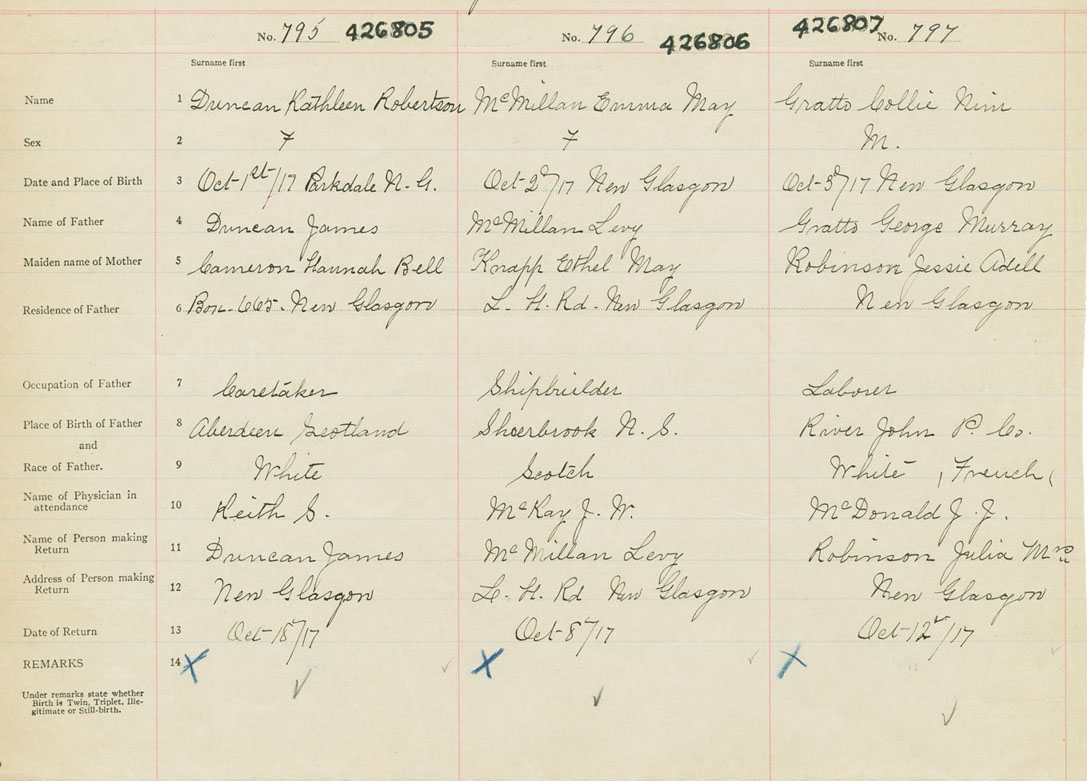 No. 795 426805 No. 796 426806 426807 No. 797
Surname first Surname first Surname first
Name 1 Duncan Kathleen Robertson McMillan Emma May Gratto Collie Nim
Sex 2 F F M.
Date and Place of Birth 3 Oct-1st/17 Parkdale N. G. Oct-2nd/17 New Glasgow Oct-3rd/17 New Glasgow
Name of Father 4 Duncan James McMillan Levy Gratto George Murray
Maiden name of Mother 5 Cameron Hannah Bell Knapp Ethel May Robinson Jessie Adell
Residence of Father 6 Box-665. New Glasgow L. H. Rd- New Glasgow New Glasgow
Occupation of Father 7 Caretaker Shipbuilder Laborer
Place of Birth of Father 8 Aberdeen Scotland Sherbrook N. S. River John P. Co.
and
Race of Father. 9 White Scotch White (French)
Name of Physician in attendance 10 Keith S. McKay J. W. McDonald J. J.
Name of Person making Return 11 Duncan James McMillan Levy Robinson Julia Mrs
Address of Person making Return 12 New Glasgow L. H. Rd New Glasgow New Glasgow
Date of Return 13 Oct-18/17 Oct-8/17 Oct-12/17
REMARKS 14
Under remarks state whether
Birth is Twin, Triplet, Ille-
gitimate or Still-birth.